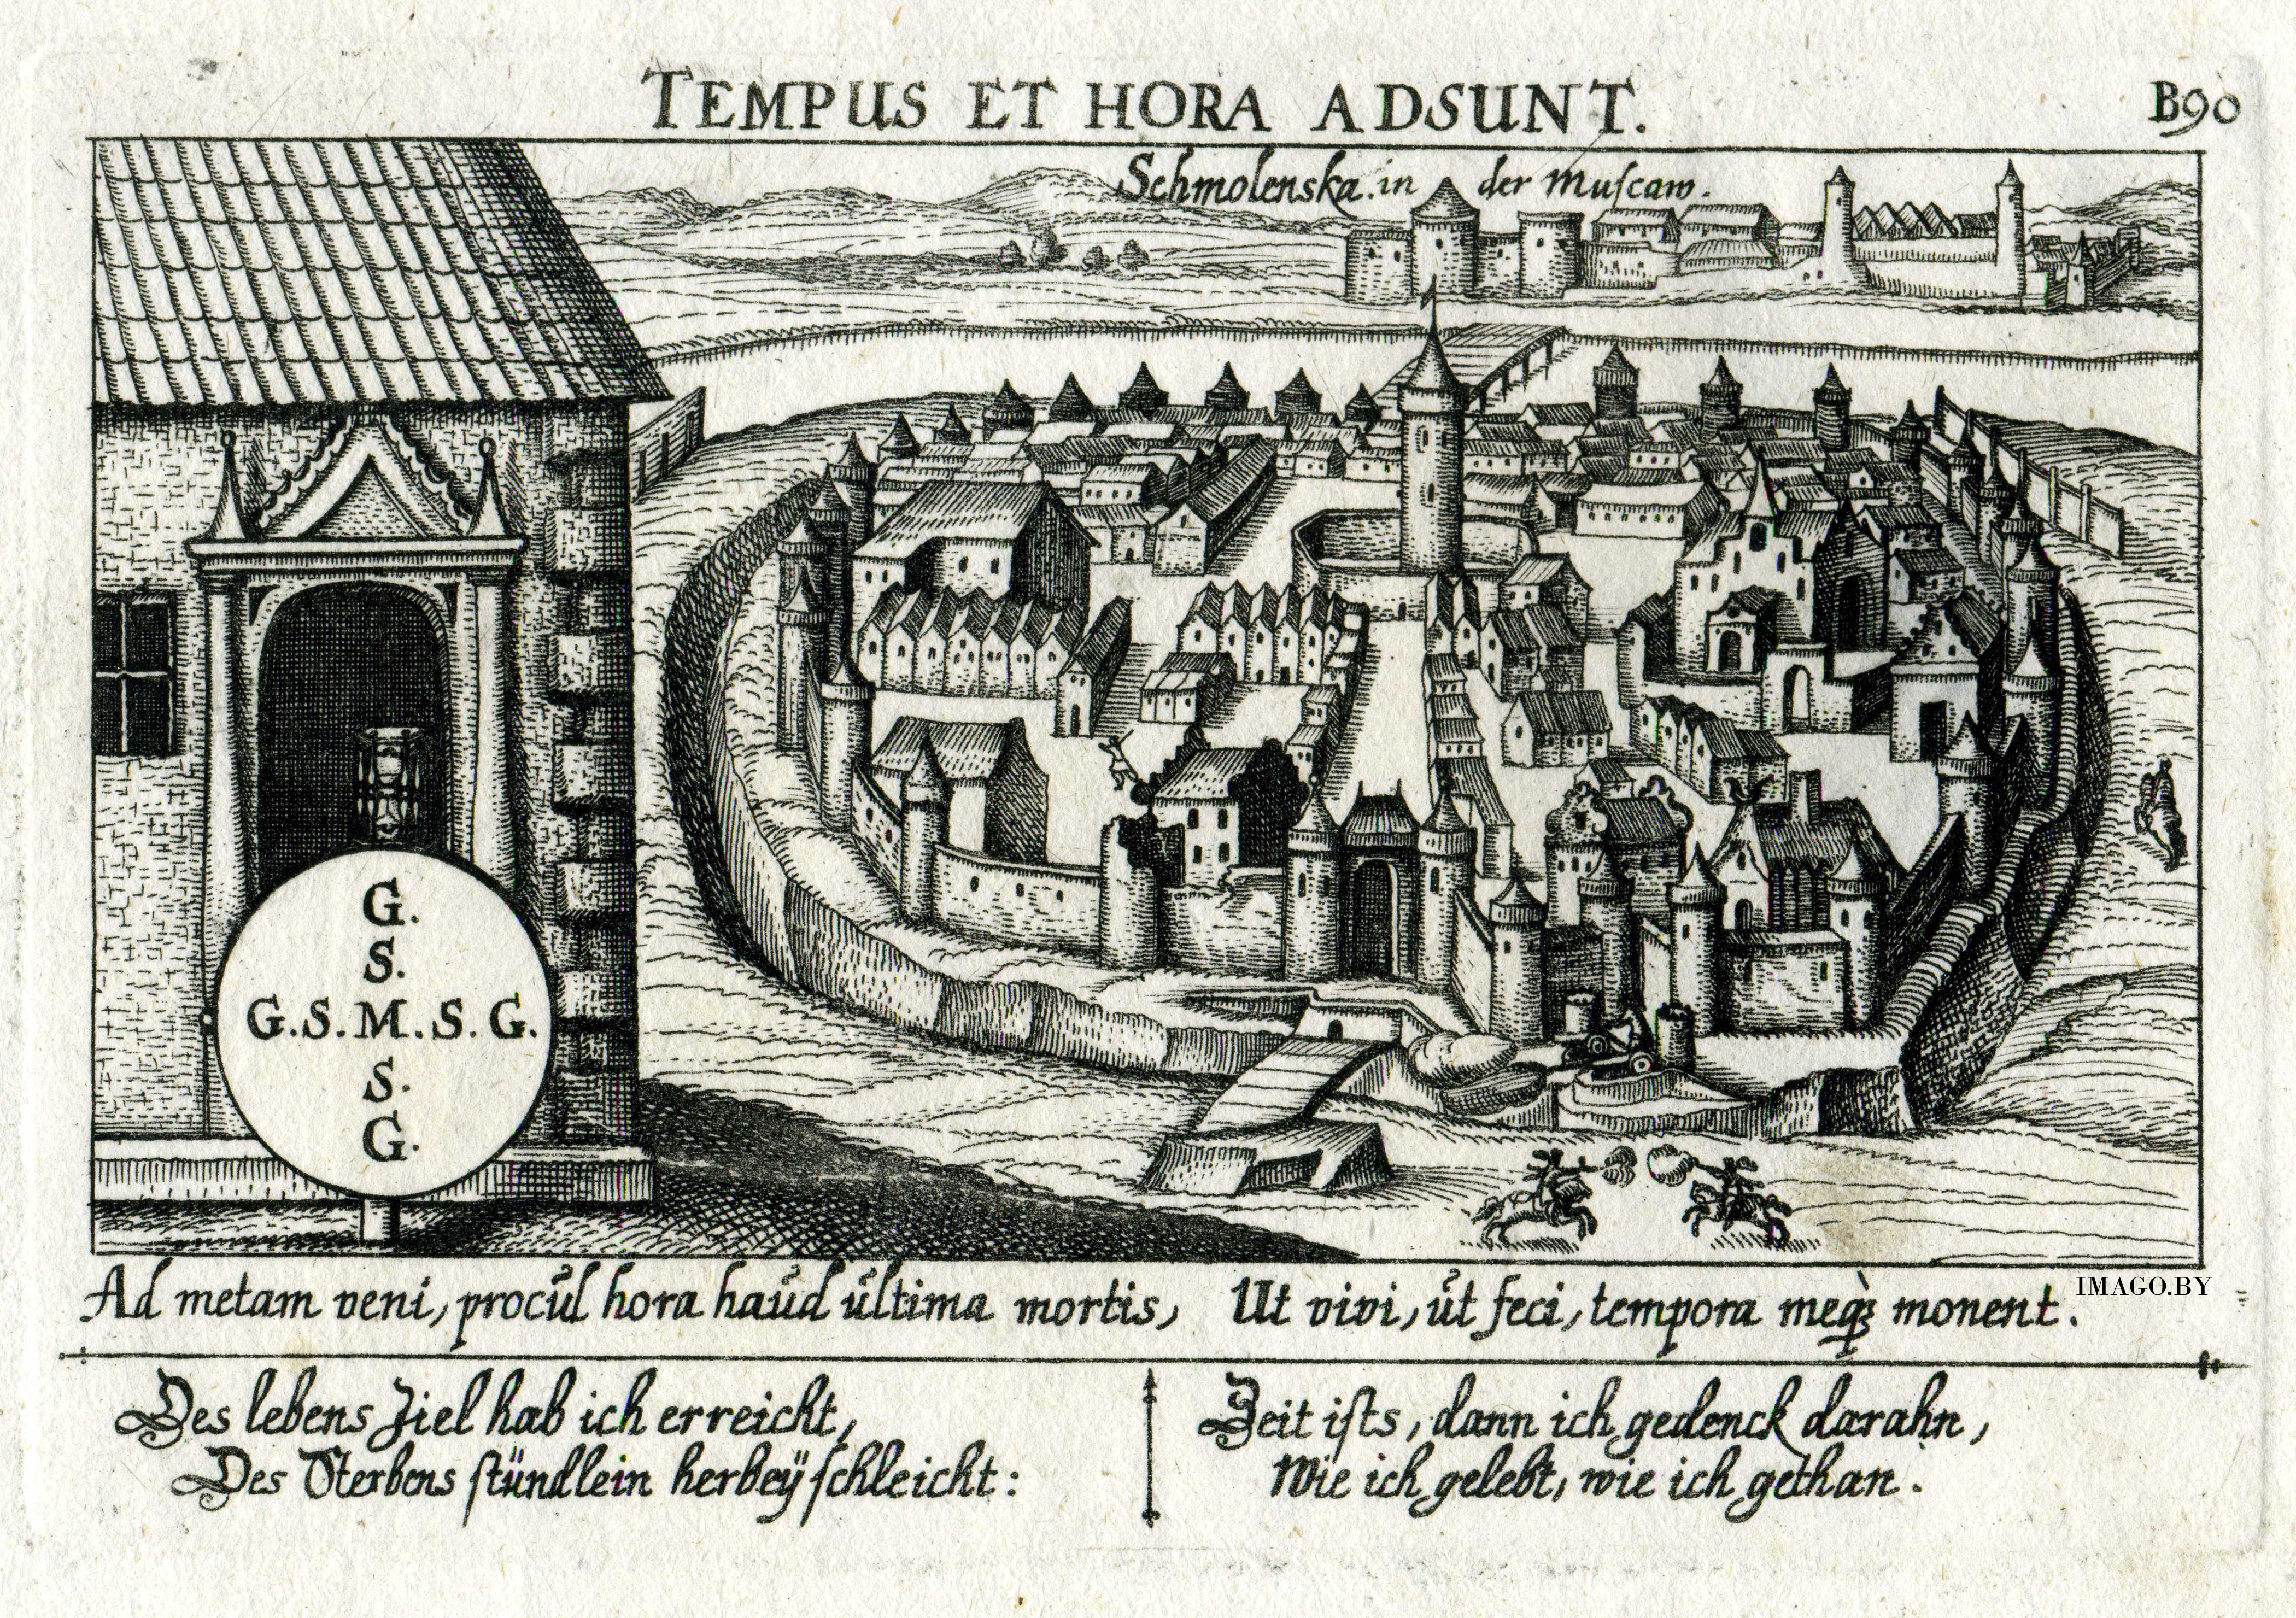 TEMPUS ET HORA ADSUNT.
B90
Schmolenska. in der Muſcaw.
G.
S.
G.S.M.S.G.
S.
G.
Ad metam veni, procul hora haud ultima mortis, Ut vivi, ut feci, tempora meq́ꝫ monent.
IMAGO.BY
Des lebens Ziel hab ich erreicht,
Des Sterbens ſtündlein herbeÿ ſchleicht:
Zeit iſts, dann ich gedenck darahn,
Wie ich gelebt, wie ich gethan.